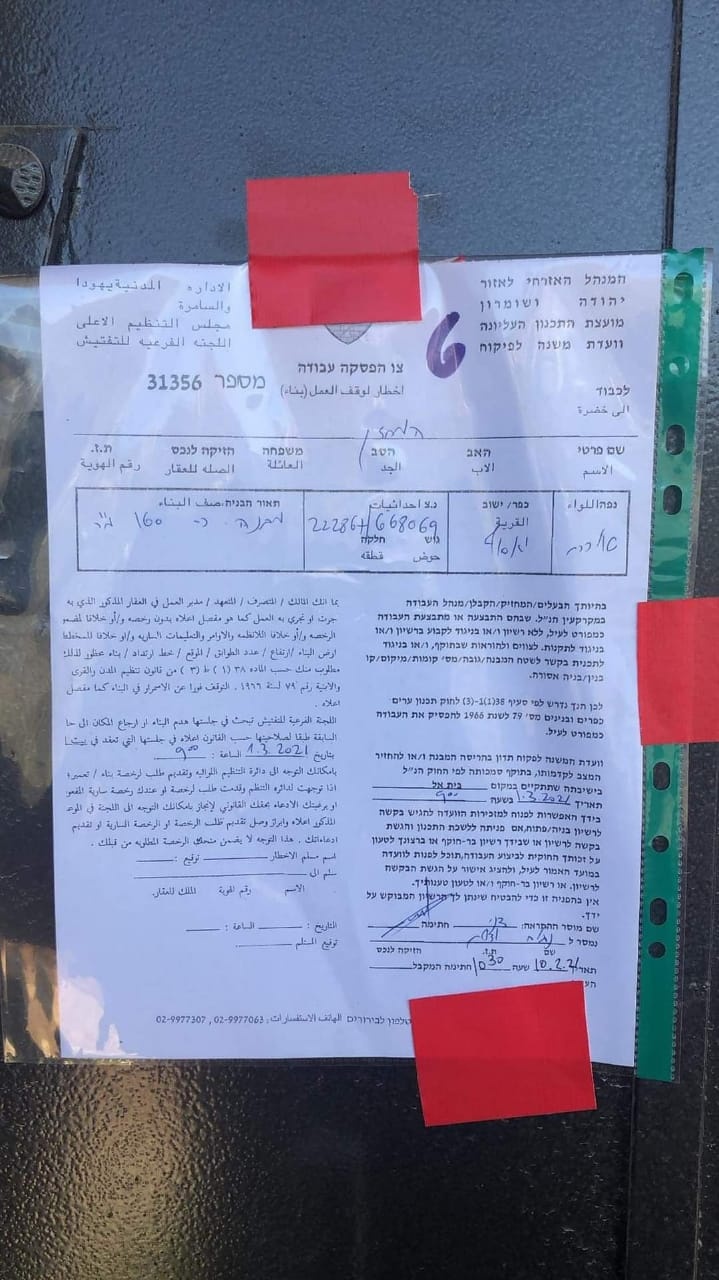 המנהל האזרחי לאזור
יהודה ושומרון
מועצת התכנון העליונה
וועדת משנה לפיקוח
الاداره المدنيةيهودا
والسامرة
مجلس التنظيم الاعلى
اللجنه الفرعيه للتفتيش
6
צו הפסקה עבודה
اخطار لوقف العمل (بناء)
מספר 31356
לכבוד
الى حضرة
המחזיק
שם פרטי האב הסב משפחה הזיקה לנכס ת.ז.
الاسم الاب الجد العائلة الصله للعقار رقم الهوية
נפה/اللواء
כפר/ ישוב
القرية
נ.צ احداثيات
222864/668069
גוש חלקה
حوض قطقه
תאור הבניה.صف البناء
מבנה כ- 160 מ"ר
בהיותך הבעלים/המחזיק/הקבלן/מנהל העבודה
במקרקעין הנ"ל. שבהם התבצעה או מתבצעת העבודה
כמפורט לעיל, ללא רשיון ו/או בניגוד לקבוע ברשיון ו/או
בניגוד לתקנות. לצווים ולהוראות שבתוקף, ו/או בניגוד
לתכנית בקשר לשטח המבנה/גובה/מס' קומות/מיקום/קו
בנין/בניה אסורה.
לכן הנך נדרש לפי סעיף 38(1)(ט-3) לחוק תכנון ערים
כפרים ובנינים מס' 79 לשנת 1966 להפסיק את העבודה
כמפורט לעיל.
וועדת המשנה לפקוח תדון בהריסת המבנה ו/או להחזיר
המצב לקדמותו, בתוקף סמכותה לפי החוק הנ"ל
בישיבתה שתתקיים במקום בית אל
תאריך 1.3.2021 בשעה 9⁰⁰
בידך האפשרות לפנות למזכירות הוועדה להגיש בקשה
לרשיון בניה/פתוח,אם פניתה ללשכת התכנון והגשת
בקשה לרשיון או שבידך רשיון בר-חוקף או ברצונך לטעון
על זכותך החוקית לביצוע העבודה,תוכל לפנות לוועדה
במועד האמור לעיל, ולהציג אישור על הגשת הבקשה
לרשיון. או רשיון בר-חוקף ו/או לטעון טענותיך.
אין בהפניה זו כדי להבטיח שינתן לך הרשיון המבוקש על
ידך.
שם מוסר ההתראה: חתימה
נמסר ל
שם ת.ז. הזיקה לנכס
תאר 10.2.21 שעה 10³⁰ חתימה המקבל
بما انك المالك / المتصرف / المتعهد / مدير العمل في العقار المذكور الذي به
جرت او تجري به العمل كما هو مفصل اعلاه بدون رخصه و/أو خلافا لمضمو
الرخصه و/أو خلافا للانظمه والاوامر والتعليمات الساريه و/او خلافا للمخطط
ارض البناء /ارتفاع / عدد الطوابق / الموقع / خط ارتداد / بناء محظور لذلك
مطلوب منك حسب الماده ٣٨ (١) ط (٣) من قانون تنظيم المدن والقرى
والابنية رقم ٧٩ لسنة ١٩٦٦. التوقف فورا عن الاستمرار في البناء كما مفصل
اعلاه .
اللجنة الفرعية للتفتيش تبحث في جلستها هدم البناء او ارجاع المكان الى حا
السابقة طبقا لصلاحيتها حسب القانون اعلاه في جلستها التي تعقد في بيت ا
بتاريخ 1.3.2021 الساعة : 9⁰⁰
بامكانك التوجه الى دائرة التنظيم اللوائيه وتقديم طلب لرخصة بناء / تعمير؛
اذا توجهت لدائره التنظم وقدمت طلب لرخصة او عندك رخصة سارية المفعو
او برغبتك الادعاء بحقك القانوني لإنجاز بامكانك التوجه الى اللجنة في الموعد
المذكور اعلاه وابراز وصل تقديم طلب الرخصة او الرخصة السارية او لتقديم
ادعاءاتك . هذا التوجه لا يضمن منحك الرخصة المطلوبه من قبلك .
اسم مسلم الاخطار توقيع :
سلم الى
الاسم رقم الهوية المالك للعقار.
التاريخ : الساعة :
توقيع المستلم
טלפון לבירורים الهاتف الاستفسارات : 02-9977063 , 02-9977307